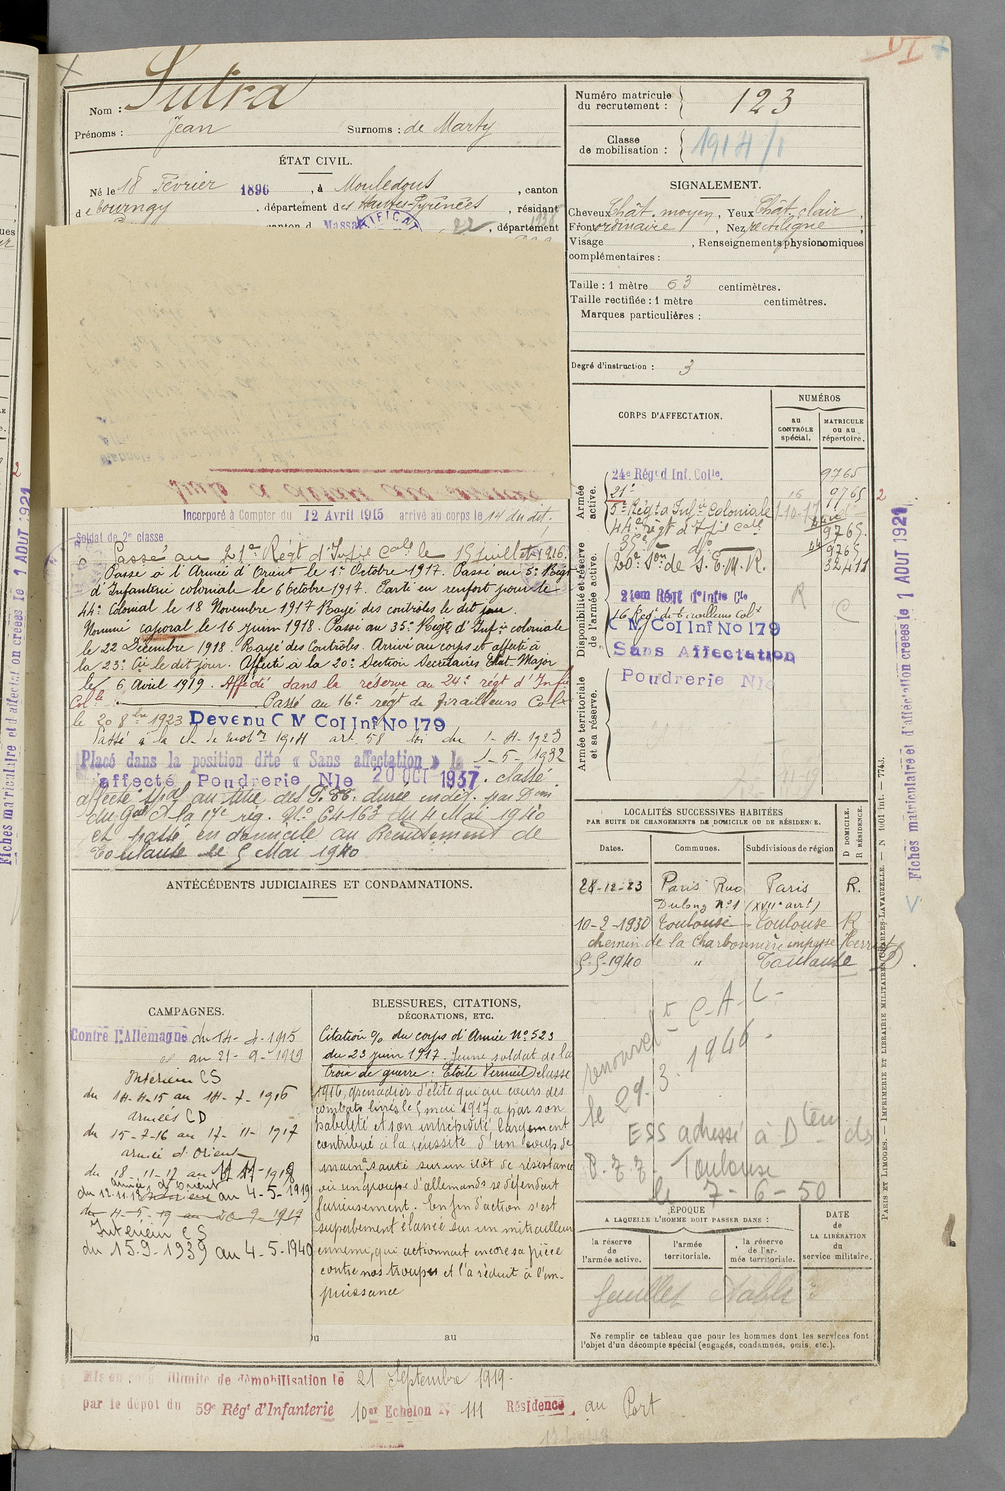 VI
Nom : Sutra
Prénoms : Jean Surnoms : de Marty
ÉTAT CIVIL.
Né le 18 Février 1896, à Mouledous, canton
de Tournay, département des Hautes-Pyrénées, résidant
canton d Massa 22, département
Incorporé à Compter du 12 Avril 1915 arrivé au corps le 14 du dit.
Soldat de 2e classe
Passé au 21e Régt d'Infie Cale le 15 juillet 1916.
Passé à l'Armée d'Orient le 1er Octobre 1917. Passé au 5e Régt
d'Infanterie coloniale le 6 Octobre 1917. Parti en renfort pour le
44e Colonial le 18 Novembre 1917 Rayé des contrôles le dit jour.
Nommé caporal le 16 juin 1918. Passé au 35e Régt d'Infie coloniale
le 22 Décembre 1918. Rayé des Contrôles. Arrivé au corps et affecté à
la 23e Cie le dit jour. Affecté à la 20e Section Secrétaires Etat Major
le 6 Avril 1919. Affecté dans la réserve au 24e régt d'Infie
Colle. Passé au 16e régt de Tirailleurs Colx
le 20 8bre 1923 Devenu C M Col Inf No 179
Passé à la cl. de mobon 1914 art 58 loi du 1-4-1923
Placé dans la position dite « Sans affectation » le 1-5-1932
affecté Poudrerie Nle 20 OCT 1937. classé
affecté spal au titre des P.TT. durée indég. par Déci
du Gal Ct la 17e rég. No C4163 du 4 Mai 1940
et passé en domicile au Recrutement de
Toulouse le 5 Mai 1940
ANTÉCÉDENTS JUDICIAIRES ET CONDAMNATIONS.
CAMPAGNES.
Contre l'Allemagne du 14-4-1915
au 21-9-1919
Intérieur CS
du 14-4-15 au 14-7-1916
armées CD
du 15-7-16 au 17-11-1917
armée d'Orient
du 18-11-17 au 11-11-1918
armée d'Orient
du 12.11.18 au 4-5-1919
du 4-5-19 au 20-9-1919
Intérieur CS
du 15.9-1939 au 4-5-1940
BLESSURES, CITATIONS,
DÉCORATIONS, ETC.
Citation O/ du corps d'Armée No 523
du 23 juin 1917. Jeune soldat de la
Croix de guerre : Etoile Vermeil classe
1916, grenadier d'élite qui au cours des
combats livrés le 5 mai 1917 a par son
habileté et son intrépidité largement
contribué à la réussite d'un coup de
main tenté sur un îlot de résistance
où un groupe d'allemands se défendait
furieusement. En fin d'action s'est
superbement élancé sur un mitrailleur
ennemi, qui actionnait encore sa pièce
contre nos troupes et l'a réduit à l'im-
puissance
du au
Numéro matricule
du recrutement : 123
Classe
de mobilisation : 1914/1
SIGNALEMENT.
Cheveux Chât. moyen, Yeux Chât. clair,
Front ordinaire, Nez rectiligne,
Visage , Renseignements physionomiques
complémentaires :
Taille : 1 mètre 63 centimètres.
Taille rectifiée : 1 mètre centimètres.
Marques particulières :
Degré d'instruction : 3
CORPS D'AFFECTATION.
NUMÉROS
AU CONTRÔLE spécial.
MATRICULE OU AU répertoire.
Armée active.
24e Régt d Inf. Colle. 9765
21e 16 9765
5e Régt d'Infie Coloniale 1-10-17
44e régt d'Infie cale 9765
35e do 9765
20e Son de S.E.M.R. 32411
Disponibilité et réserve de l'armée active.
21em Régt d'Infie Cle R
16 Régt de tirailleurs Colx C
C M Col Inf No 179
Sans Affectation
Poudrerie Nle
Armée territoriale et sa réserve.
LOCALITÉS SUCCESSIVES HABITÉES
PAR SUITE DE CHANGEMENTS DE DOMICILE OU DE RÉSIDENCE.
Dates. Communes. Subdivisions de région D DOMICILE. R RÉSIDENCE.
28-12-23 Paris Rue Paris R.
Dulong No 1 (XVIIe arrt)
10-2-1930 Toulouse Toulouse R
chemin de la Charbonnière impasse Herriot
5-5-1940 " Toulouse D
renouvel
le 29.3.1946.
ESS adressé à Dteur ds
Toulouse
le 7-6-50
ÉPOQUE
A LAQUELLE L'HOMME DOIT PASSER DANS :
la réserve de l'armée active.
l'armée territoriale.
la réserve de l'armée territoriale.
DATE DE LA LIBÉRATION du service militaire.
Feuillet établi
Ne remplir ce tableau que pour les hommes dont les services font
l'objet d'un décompte spécial (engagés, condamnés, omis, etc.).
Mis en congé illimité de démobilisation le 21 Septembre 1919.
par le dépôt du 59e Régt d'Infanterie 10e Echelon No 111 Résidence au Port
Fiches matriculaire et d'affectation créées le 1 AOUT 1921
Fiches matriculaire et d'affectation créées le 1 AOUT 1921
PARIS ET LIMOGES. — IMPRIMERIE ET LIBRAIRIE MILITAIRES CHARLES-LAVAUZELLE. — N 1001 int. — 7743.